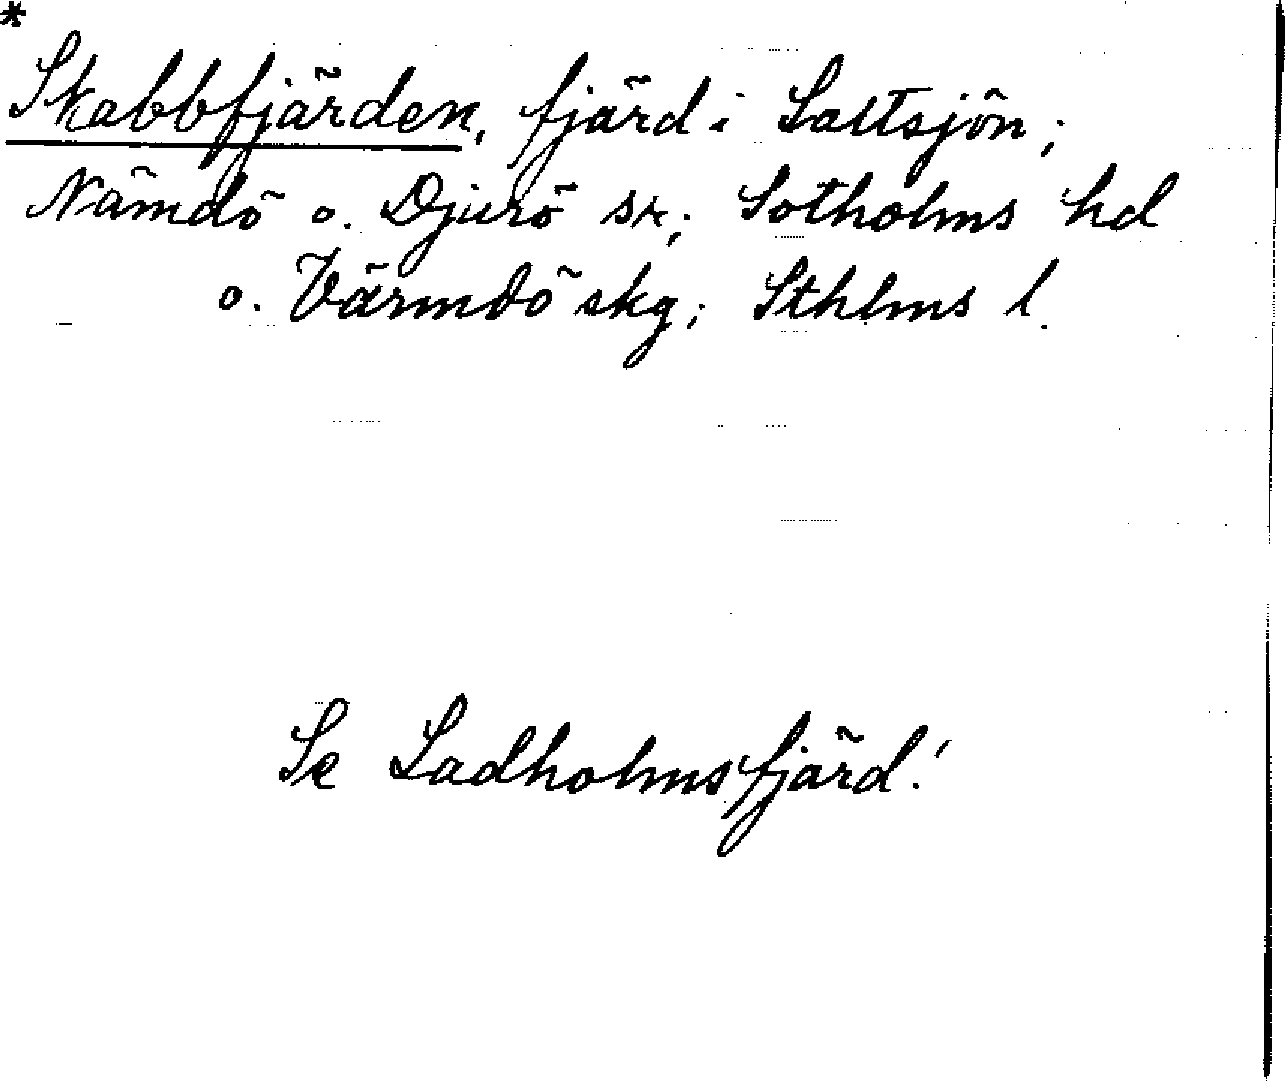 *
Skabbfjärden, fjärd i Saltsjön;
Nämdö o. Djurö sk; Sotholms hd
o. Värmdö skg; Sthlms l.
Se Ladholmsfjärd!